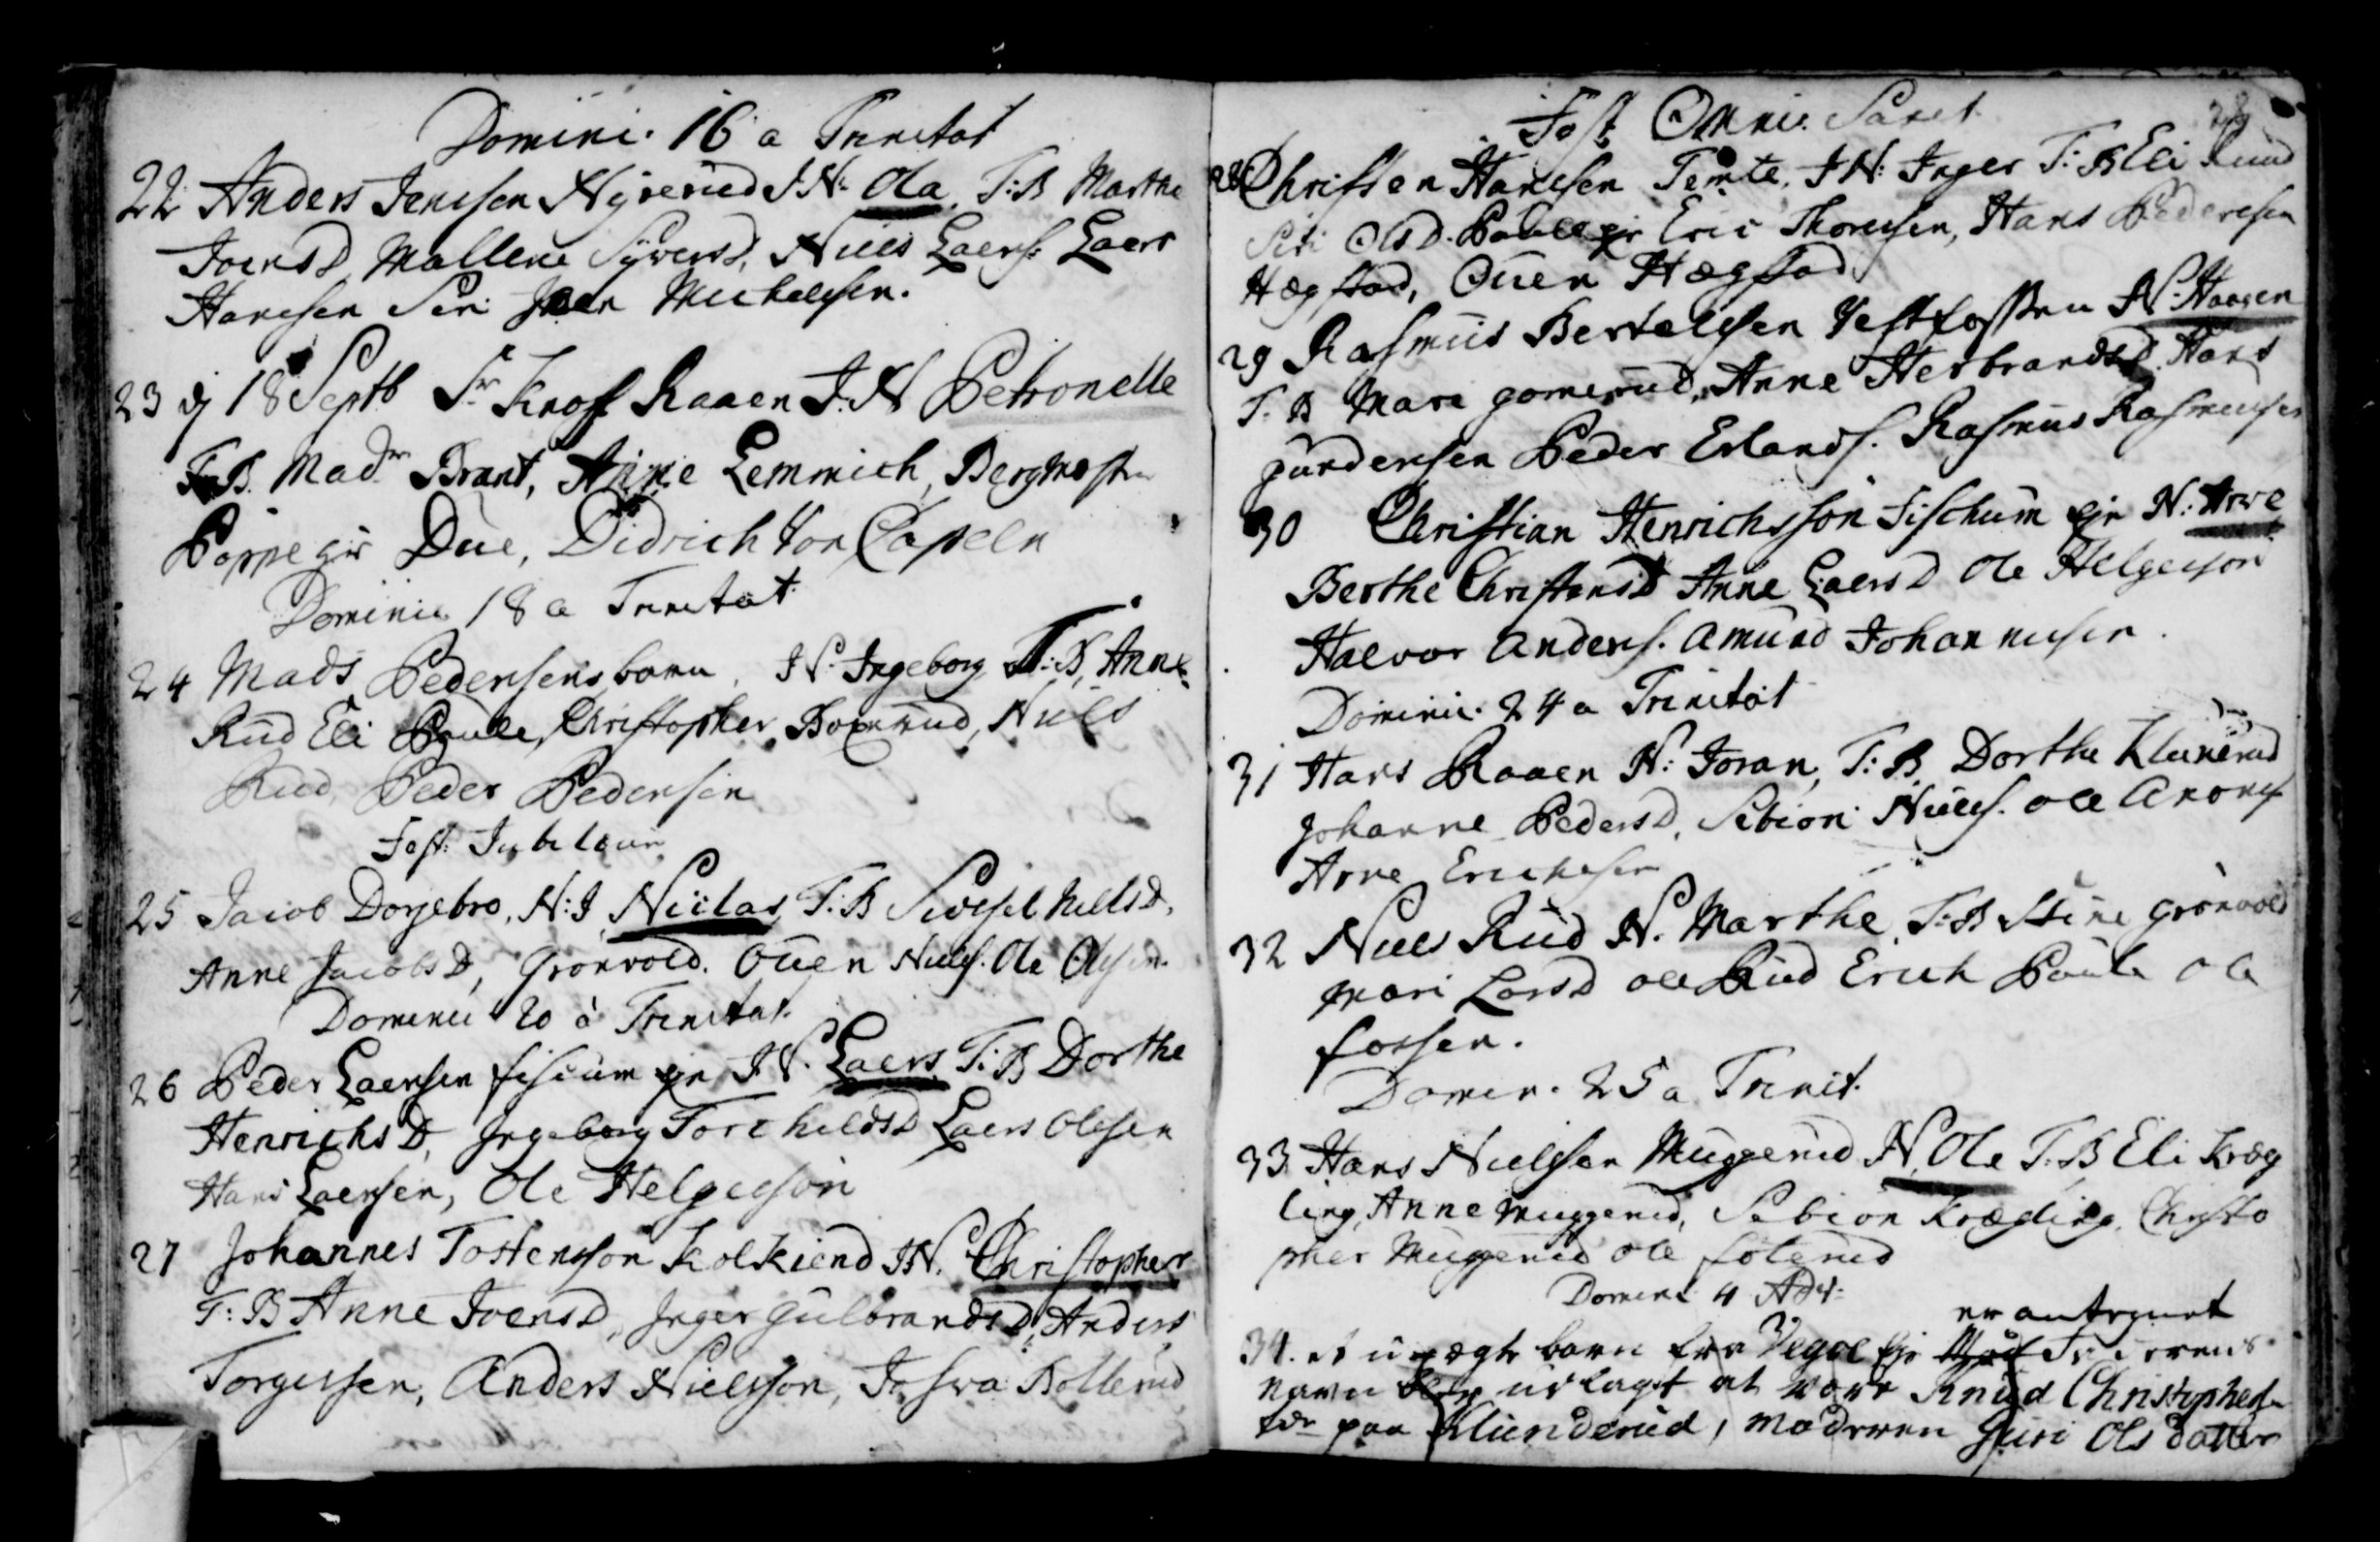 Domini. 16 a Trinitat
22 Anders Jensen Nÿrerud J. N. Ola. T: B Marthe
Joens D, Mallene Syvers D, Niels Laers: Laers
Hansen Siri Joen Michelsen.
23 dj 18 Septb Sr Knoph Raaen J. N Petronelle
T. B. Madm Brant, Anne Lemmich, Bergmester
Due, Didrich Von Capeln
Dominic 18 a Trinitat
24 Mads Pedersens barn, N. Ingeborg T: B, Anne
Rud Eli Paule, Christopher Rud, Niels
Rud, Peder Pedersen
Fest: Jubilæum
25 Jacob Dorjebro, N: J Niclas T: B Sidsel Niels D,
Anne Jacobs D, Grönvold. Ouen Niels. Ole Olsen.
Dominic 20 à Trinitat.
26 Peder Laersen fiscum eje J N. Laers T: B Dorthe
Henrichs D, Ingeborg Torchilds D Laers Olesen
Hans Laersen, Ole Helgesson
27 Johannes Tostensson Kolkiend J N. Christopher
T: B Anne Joens D, Inger Gulbrands D, Anders
Torgersen, Anders Nielsson, Josva Bollerud
28
Fest Omni: Sanct
28 Christen Hansen Temte, J N: Inger T: B Eli Ruud
Siri Ols D. Paule eje Eric Thoresen, Hans Pedersen
Hægstad, Ouen Hægstad
29 Rasmus Bertelsen Vestfossen N. Haagen
T. B Mari gomerud, Anne Herbrands D. Hans
gundersen Peder Erlands. Rasmus Rasmusen
30 Christian Henrichsson Fischum eje N: Arve
Berthe Christens D Anne Laers D Ole Helgeson
Halvor Anders. Amund Johannesen.
Dominic. 24 a Trinitat
31 Hans Raaen N: Joran, T: B, Dorthe Klunerud
Johanne Peders D, Sebion Niels. Ole
Arne Erichsen
32 Niels Rud N. Marthe, T: B Stine grönvold
Mari Lars D Ole Rud Erich Paule Ole
fossen.
Domin. 25 a Trinit.
33 Hans Nielsen Muggerud N. Ole T. B Eli Kræg
ling, Anne Muggerud, Sebion Krægling, Christo
pher Muggerud Ole folerud
Domini 4 Adv:
er antegnet
34. et uægte barn fra Vegoe eje
navn blev udlagt at være Knud Christopher
paa Klunderud, moderen Guri Ols datter